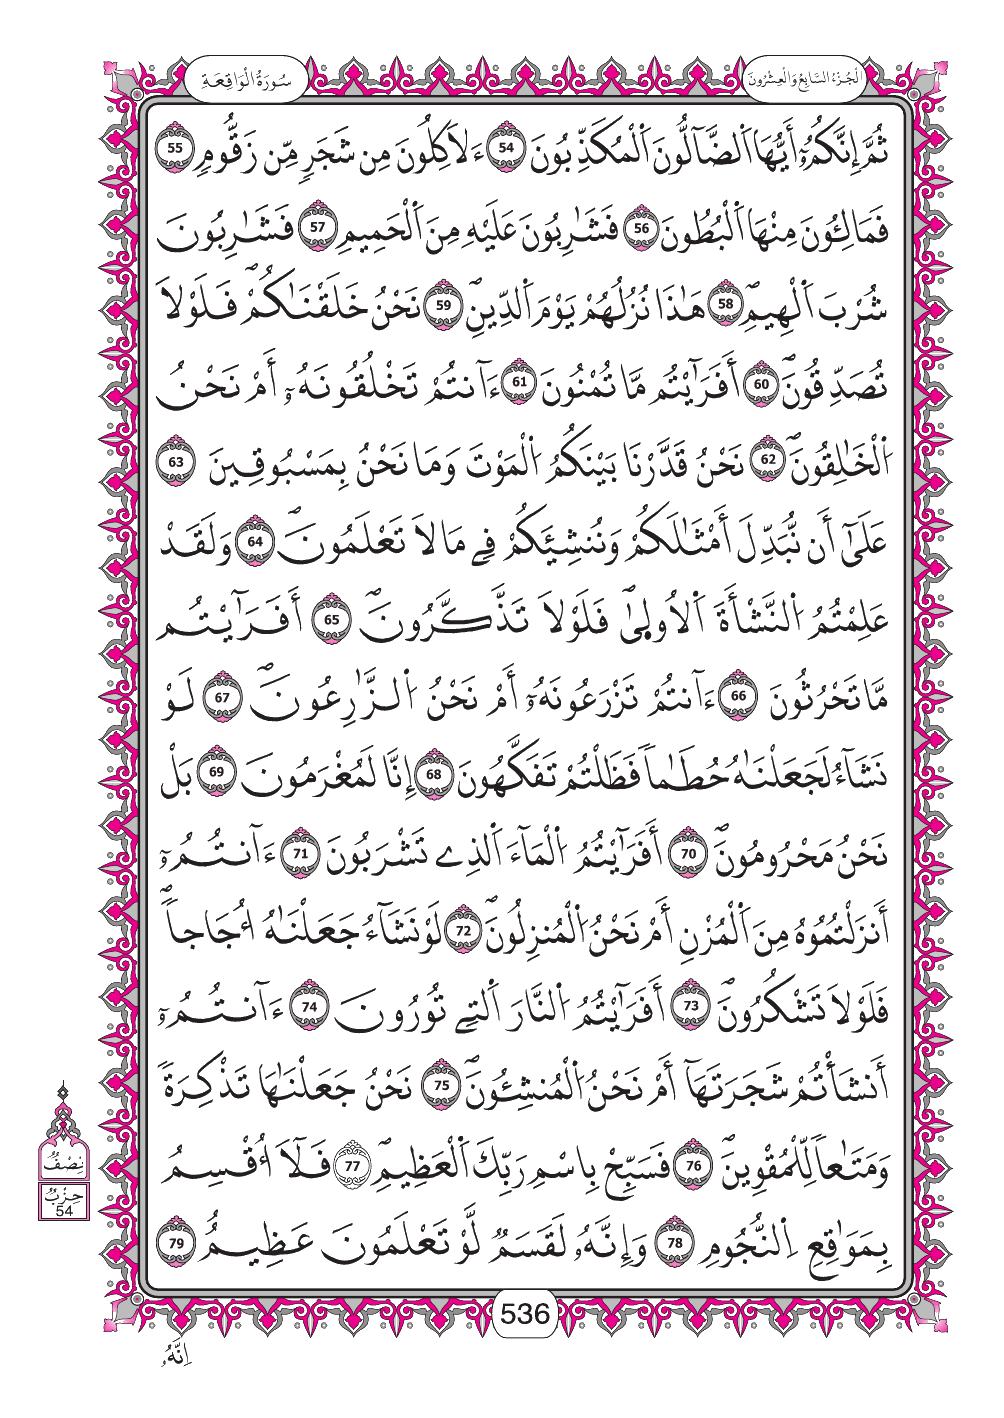 سُورَةُ الْوَاقِعَةِ
الْجُزْءُ السَّابِعُ وَالْعِشْرُونَ
ثُمَّ إِنَّكُمُۥٓ أَيُّهَا اَ۬لضَّآلُّونَ اَ۬لْمُكَذِّبُونَ 54 ءَلَاكِلُونَ مِن شَجَرٖ مِّن زَقُّومٖ 55
فَمَالِـُٔونَ مِنْهَا اَ۬لْبُطُونَ 56 فَشَٰرِبُونَ عَلَيْهِ مِنَ اَ۬لْحَمِيمِ 57 فَشَٰرِبُونَ
شُرْبَ اَ۬لْهِيمِۖ 58 هَٰذَا نُزُلُهُمْ يَوْمَ اَ۬لدِّينِۖ 59 نَحْنُ خَلَقْنَٰكُمْۖ فَلَوْلَا
تُصَدِّقُونَۖ 60 أَفَرَٰٓيْتُم مَّا تُمْنُونَ 61 ءَآنتُمْ تَخْلُقُونَهُۥٓ أَمْ نَحْنُ
اُ۬لْخَٰلِقُونَۖ 62 نَحْنُ قَدَّرْنَا بَيْنَكُمُ اُ۬لْمَوْتَ وَمَا نَحْنُ بِمَسْبُوقِينَ 63
عَلَىٰٓ أَن نُّبَدِّلَ أَمْثَٰلَكُمْ وَنُنشِئَكُمْ فِے مَا لَا تَعْلَمُونَۖ 64 وَلَقَدْ
عَلِمْتُمُ اُ۬لنَّشْأَةَ اَ۬لُاول۪ىٰۖ فَلَوْلَا تَذَّكَّرُونَۖ 65 أَفَرَٰٓيْتُم
مَّا تَحْرُثُونَ 66 ءَآنتُمْ تَزْرَعُونَهُۥٓ أَمْ نَحْنُ اُ۬لزَّٰرِعُونَۖ 67 لَوْ
نَشَآءُ لَجَعَلْنَٰهُ حُطَٰماٗ فَظَلْتُمْ تَفَكَّهُونَ 68 إِنَّا لَمُغْرَمُونَ 69 بَلْ
نَحْنُ مَحْرُومُونَۖ 70 أَفَرَٰٓيْتُمُ اُ۬لْمَآءَ اَ۬لذِے تَشْرَبُونَ 71 ءَآنتُمُۥٓ
أَنزَلْتُمُوهُ مِنَ اَ۬لْمُزْنِ أَمْ نَحْنُ اُ۬لْمُنزِلُونَۖ 72 لَوْ نَشَآءُ جَعَلْنَٰهُ أُجَاجاٗۖ
فَلَوْلَا تَشْكُرُونَۖ 73 أَفَرَٰٓيْتُمُ اُ۬لنَّارَ اَ۬لتِے تُورُونَ 74 ءَآنتُمُۥٓ
أَنشَأْتُمْ شَجَرَتَهَآ أَمْ نَحْنُ اُ۬لْمُنشِـُٔونَۖ 75 نَحْنُ جَعَلْنَٰهَا تَذْكِرَةٗ
وَمَتَٰعاٗ لِّلْمُقْوِينَۖ 76 فَسَبِّحْ بِاسْمِ رَبِّكَ اَ۬لْعَظِيمِۖ 77 فَلَآ أُقْسِمُ
بِمَوَٰقِعِ اِ۬لنُّجُومِ 78 وَإِنَّهُۥ لَقَسَمٞ لَّوْ تَعْلَمُونَ عَظِيمٌ 79
نِصْفُ
حِزْبُ
54
536
إِنَّهُۥ